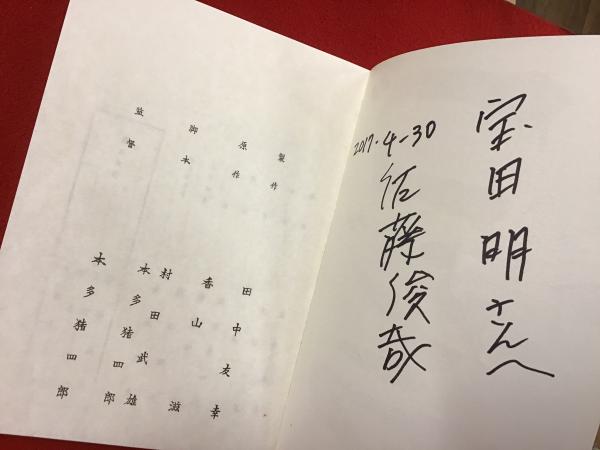 宝田明さんへ
2017・4-30
佐藤俊哉
製作 田中友幸
原作 香山滋
脚本 村田武雄
本多猪四郎
監督 本多猪四郎